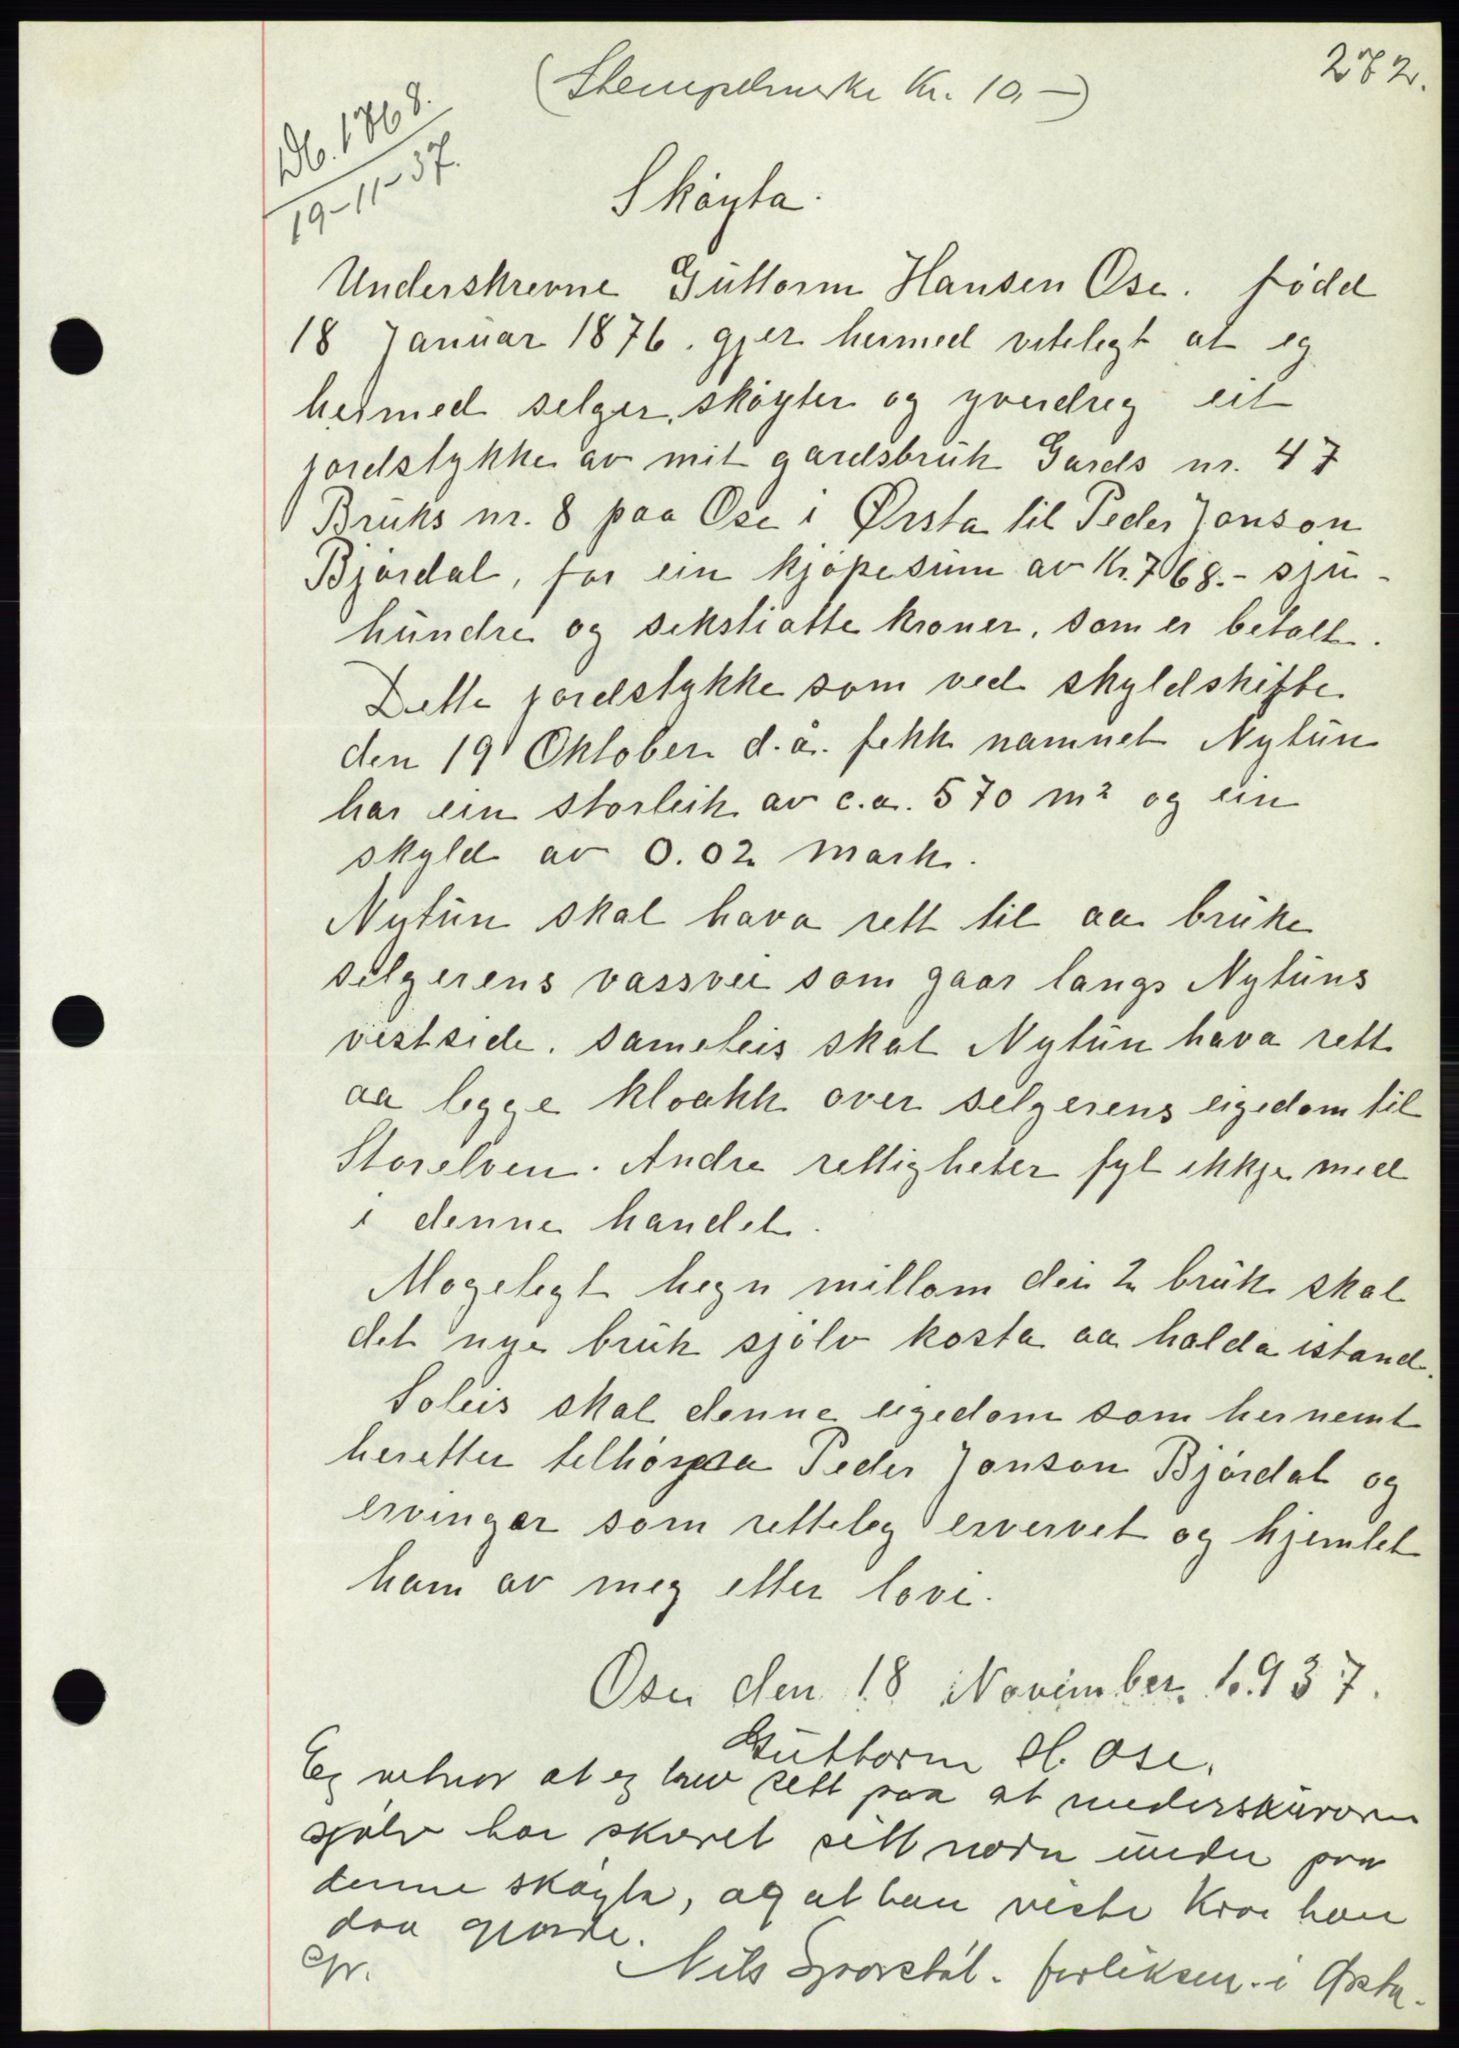 272.
(Stempelmerke Kr. 10,-)
Db. 1768.
19-11-37.
Skøyta.
Underskrevne Guttorm Hansen Ose. født
18 Januar 1876. gjer hermed vitelegt at eg
hermed selger, skøyter og yverdreg eit
jordstykke av mit gardsbruk Gards nr. 47
Bruks nr. 8 paa Ose i Ørsta til Peder Jonson
Bjørdal, for ein kjøpesum av Kr. 768.- sju-
hundre og sekstiatte kroner, som er betalt.
Dette jordstykke som ved skyldskifte
den 19 Oktober d.å. fekk namnet Nytun
har ein storleik av c.a. 570 m² og ein
skyld av 0.02 mark.
Nytun skal hava rett til aa bruke
selgerens vassvei som gaar langs Nytuns
vestside. sameleis skal Nytun hava rett
aa legge kloakk over selgerens eigedom til
Storelven. Andre rettigheter fyl ikkje med
i denne handel.
Mogelegt hegn millom dei 2 bruk skal
det nye bruk sjølv kosta aa halda istand.
Soleis skal denne eigedom som hernemt
heretter telhøyra Peder Jonson Bjørdal og
ervinger som retteleg ervervet og hjemlet
ham av meg etter lovi.
Ose den 18 November 1937.
Guttorm H. Ose.
Eg vitnar at eg hev sett paa at underskrivaren
sjølv har skrevet sitt navn under paa
denne skøyta, og at han viste kva han
daa gjorde.
Nils Sporstøl. forliksm. i Ørsta.